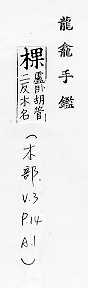 龍龕手鑑
棵
盧古胡管
二反木名
（木部．
V.3
P.14
A.1）